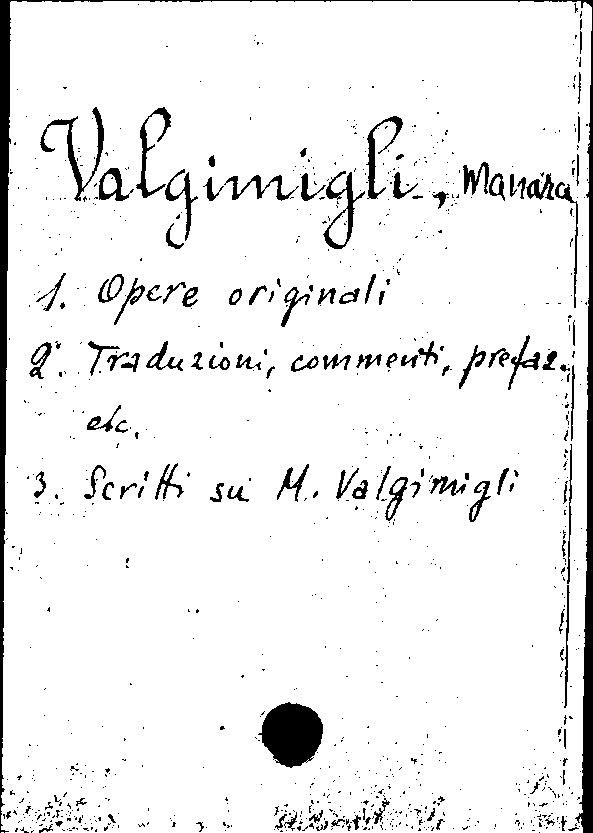 Valgimigli, Manara
1. Opere originali
2. Traduzioni, commenti, prefaz.
etc.
3. Scritti su M. Valgimigli